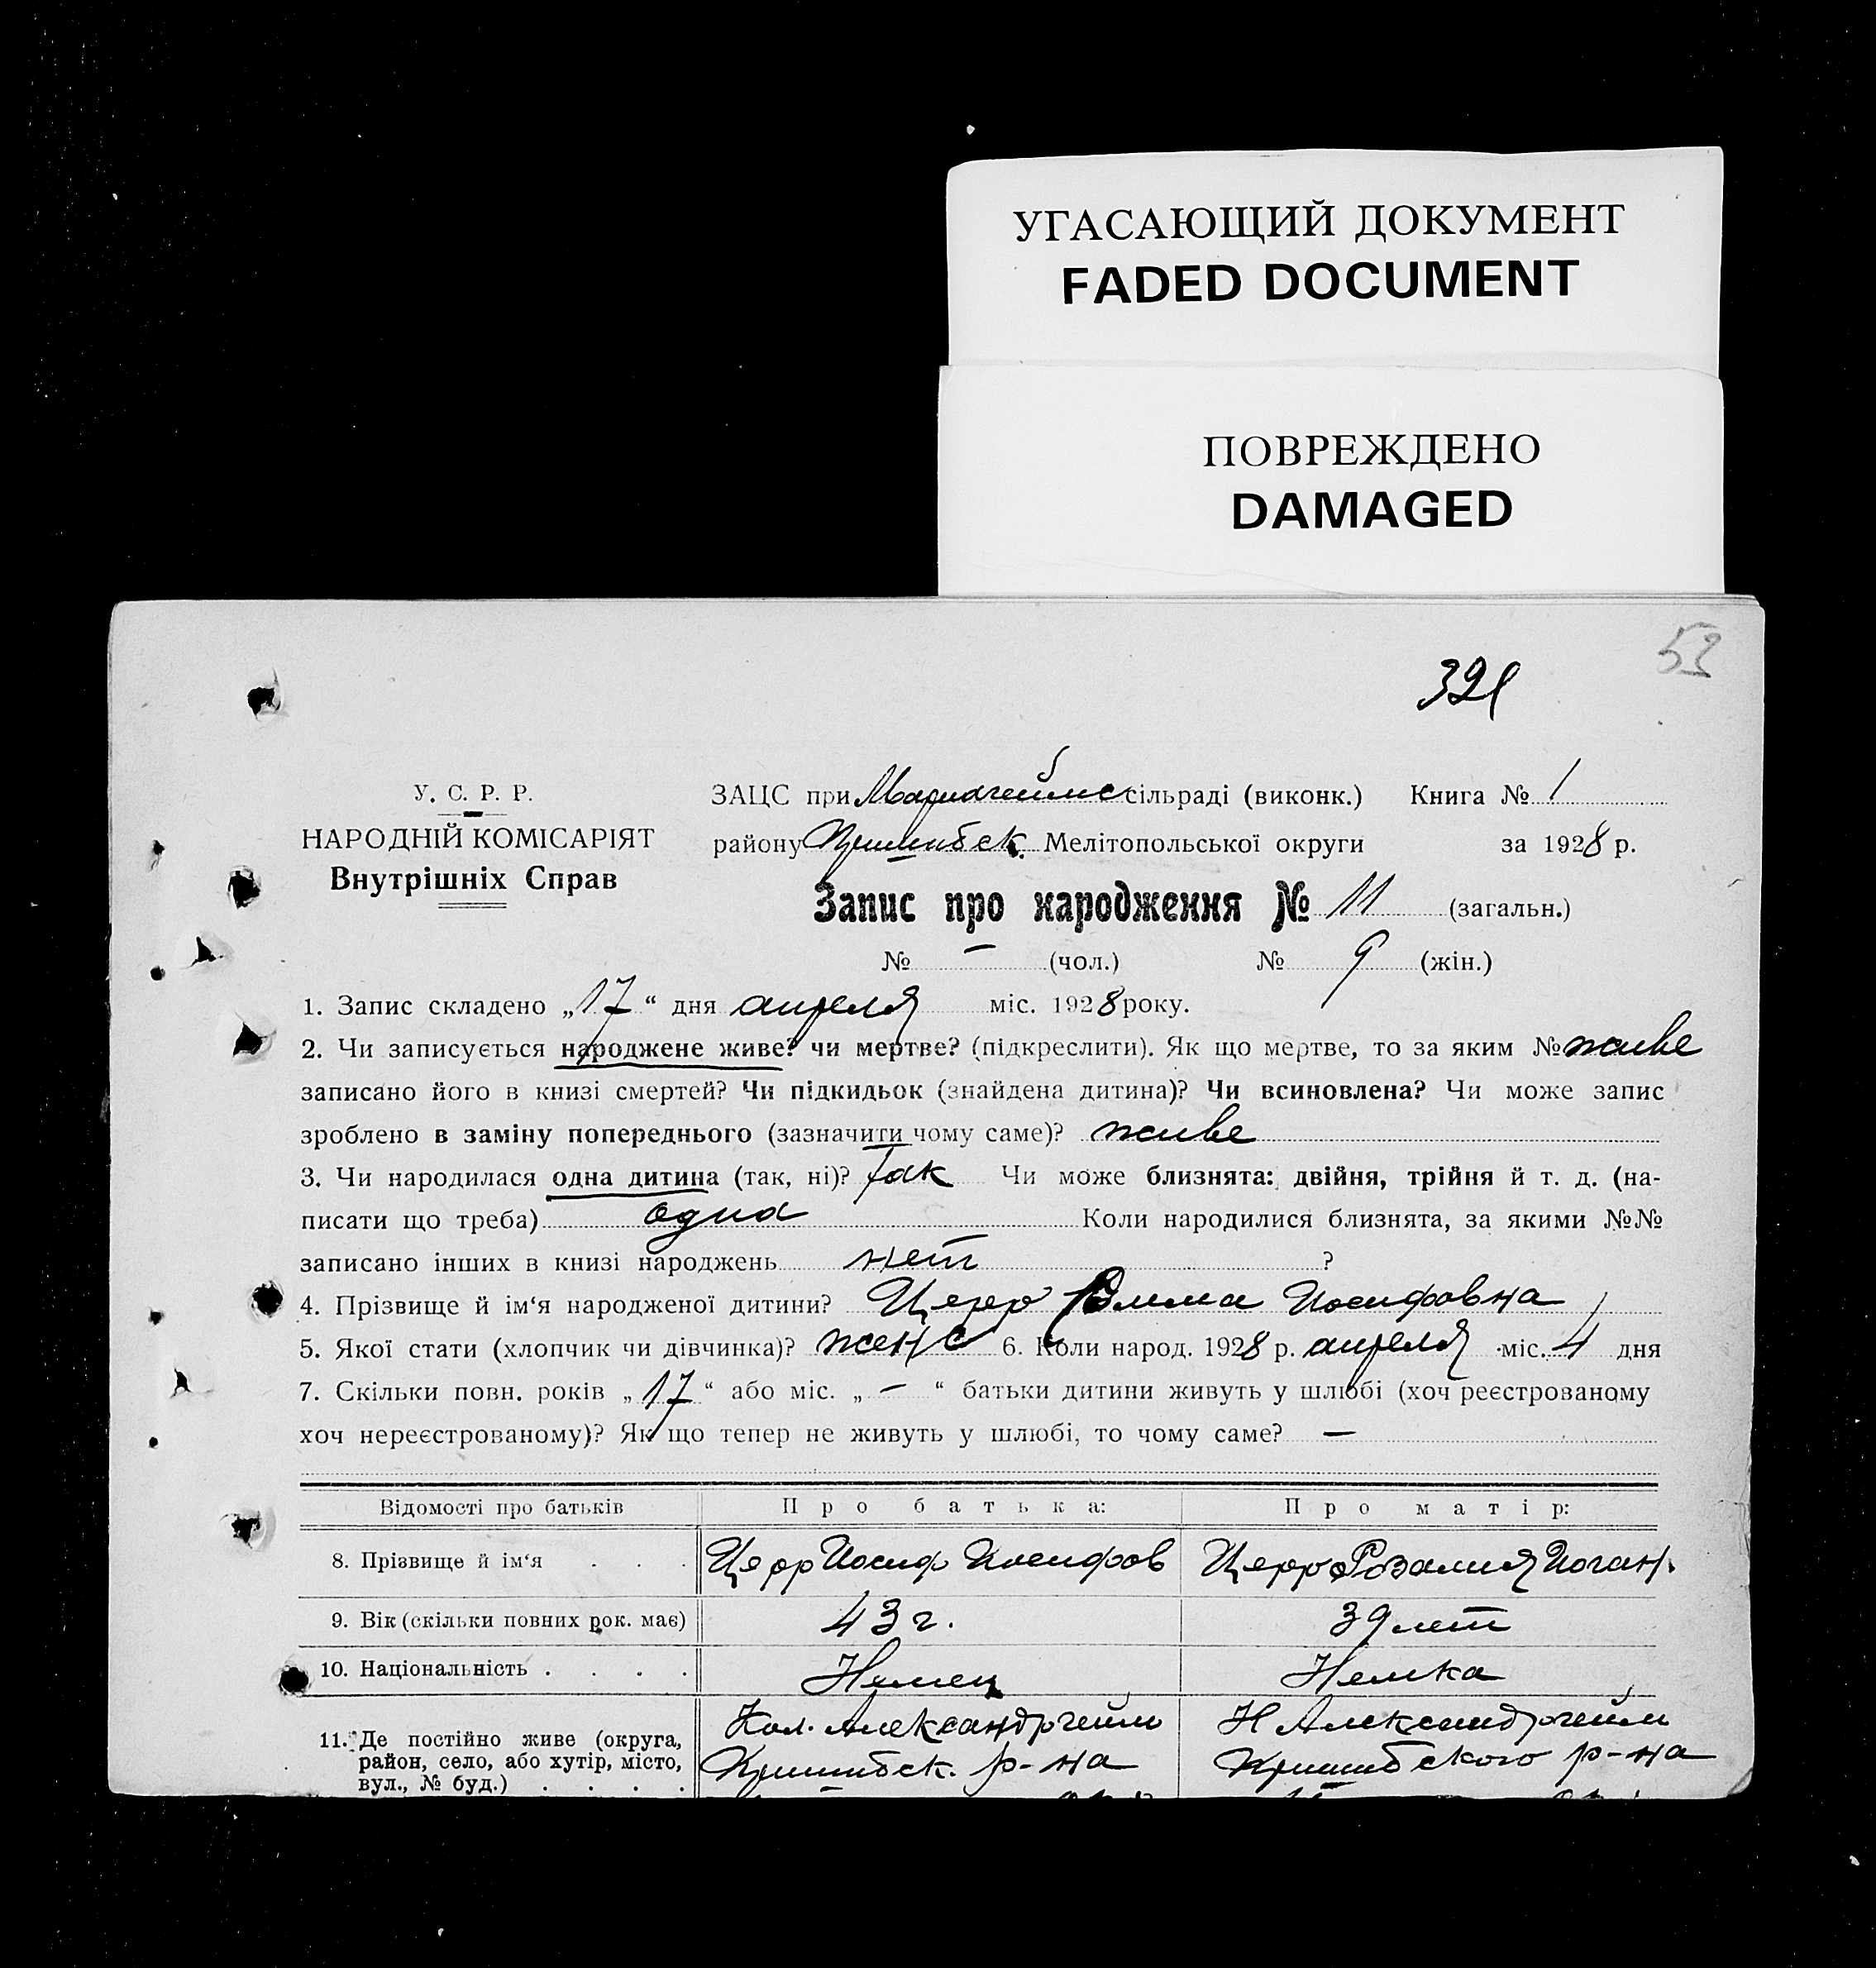 УГАСАЮЩИЙ ДОКУМЕНТ
FADED DOCUMENT
ПОВРЕЖДЕНО
DAMAGED
53
391
У. С. Р. Р.
НАРОДНІЙ КОМІСАРІЯТ
Внутрішніх Справ
ЗАЦС при Мариагеймс сільраді (виконк.) Книга № 1
району Пришибск. Мелітопольської округи за 1928 р.
Запис про народження № 11 (загальн.)
№ — (чол.) № 9 (жін.)
1. Запис складено „17“ дня апреля міс. 1928 року.
2. Чи записується народжене живе? чи мертве? (підкреслити). Як що мертве, то за яким № живе
записано його в книзі смертей? Чи підкидьок (знайдена дитина)? Чи всиновлена? Чи може запис
зроблено в заміну попереднього (зазначити чому саме)? живе
3. Чи народилася одна дитина (так, ні)? так Чи може близнята: двійня, трійня й т. д. (на-
писати що треба) одна Коли народилися близнята, за якими №№
записано інших в книзі народжень нет ?
4. Прізвище й ім‘я народженої дитини? Церр Иосифовна
5. Якої стати (хлопчик чи дівчинка)? женс 6. Коли народ. 1928 р. апреля міс. 4 дня
7. Скільки повн. років „17“ або міс. „—“ батьки дитини живуть у шлюбі (хоч реєстрованому
хоч нереєстрованому)? Як що тепер не живуть у шлюбі, то чому саме? —
Відомості про батьків Про батька: Про матір:
8. Прізвище й ім‘я . . . Церр Иосиф Иосифов Церр Розалия Иоган.
9. Вік (скільки повних рок. має) 43 г. 39 лет
10. Національність . . . . Немец Немка
11. Де постійно живе (округа, район, село, або хутір, місто, вул., № буд.) . . . . Кол. Александргейм Пришибск. р-на Н Александргейм Пришибского р-на